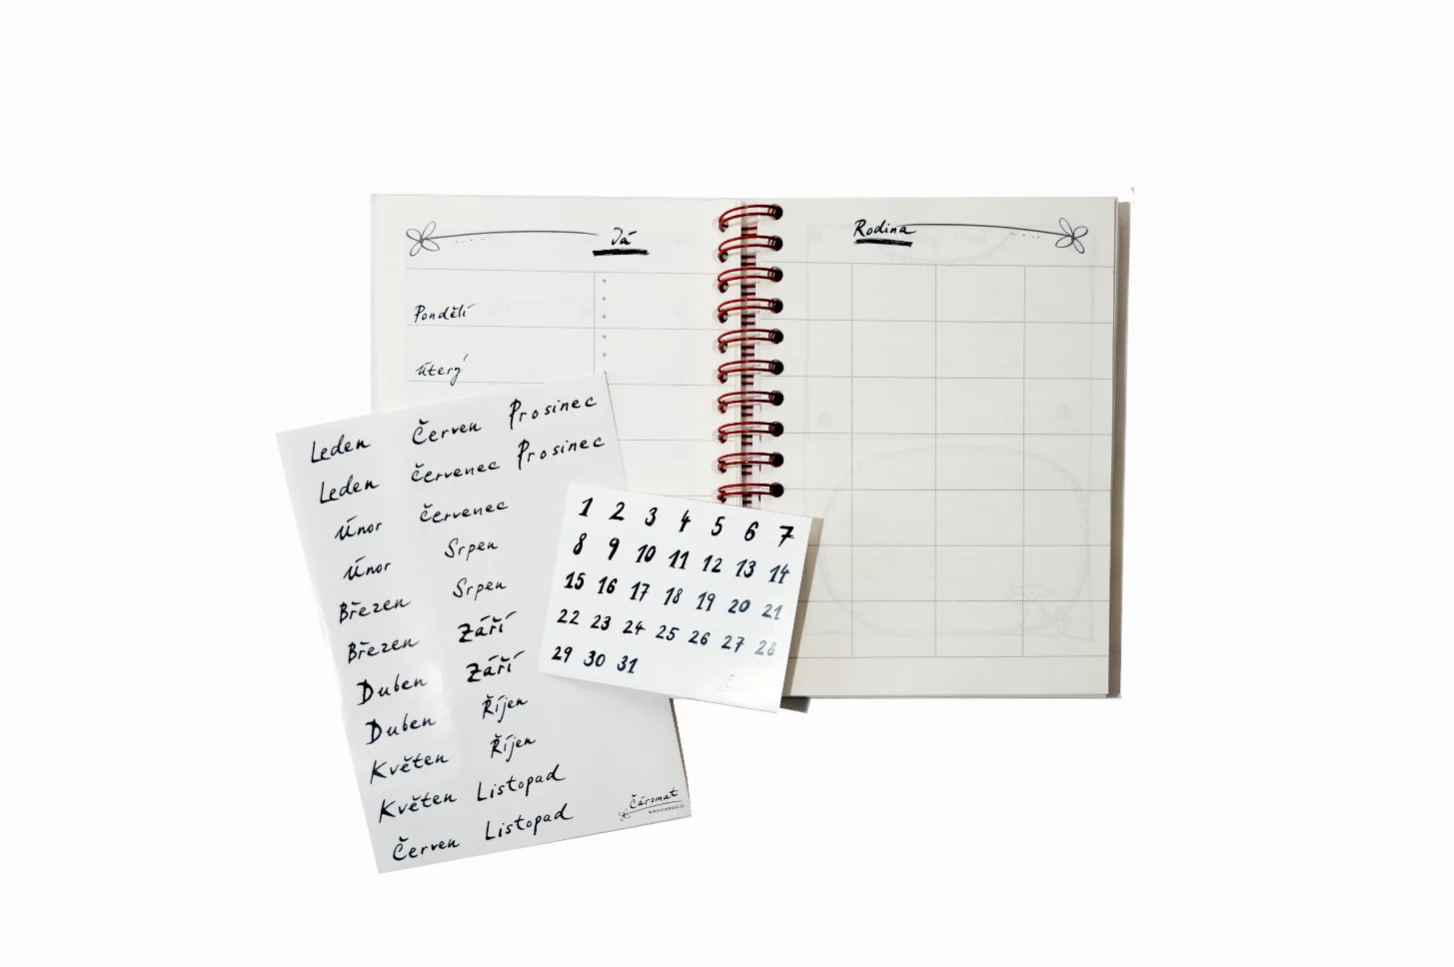 Já
Rodina
Pondělí
Úterý
Leden
Leden
Únor
Únor
Březen
Březen
Duben
Duben
Květen
Květen
Červen
Červen
Červenec
Červenec
Srpen
Srpen
Září
Září
Říjen
Říjen
Listopad
Listopad
Prosinec
Prosinec
Čáromat
1 2 3 4 5 6 7
8 9 10 11 12 13 14
15 16 17 18 19 20 21
22 23 24 25 26 27 28
29 30 31